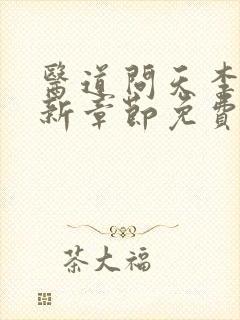 醫道問天李
新章節免費
茶大福